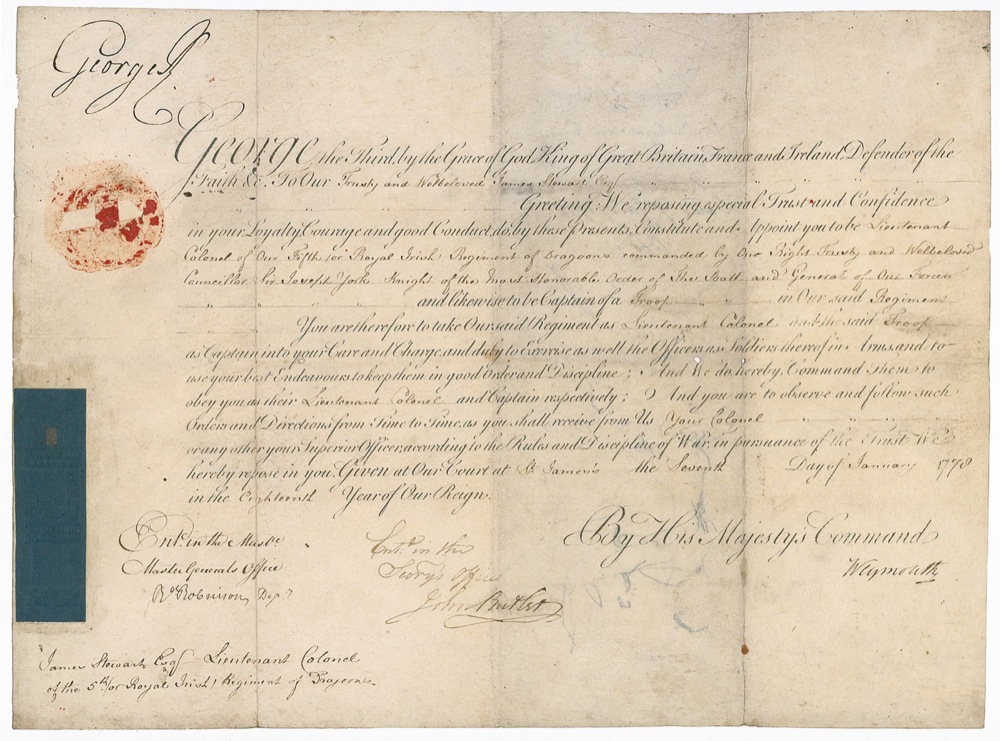 George R
George the Third, by the Grace of God, King of Great Britain, France and Ireland, Defender of the
Faith &c. To Our Trusty and Welbeloved James Stewart Esqr
Greeting: We reposing especial Trust and Confidence
in your Loyalty, Courage and good Conduct, do, by these Presents, Constitute and Appoint you to be Lieutenant
Colonel of Our Fifth (or Royal Irish) Regiment of Dragoons commanded by Our Right Trusty and Welbeloved
Councillor Sir Joseph York Knight of the Most Honorable Order of The Bath and General of Our Forces
and likewise to be Captain of a Troop in Our said Regiment
You are therefore to take Our said Regiment as Lieutenant Colonel and the said Troop
as Captain into your Care and Charge, and duly to Exercise as well the Officers as Soldiers thereof in Arms, and to
use your best Endeavours to keep them in good Order and Discipline; And We do, hereby, Command Them to
obey you as their Lieutenant Colonel and Captain respectively; And you are to observe and follow such
Orders and Directions from Time to Time, as you shall receive from Us Your Colonel
or any other your Superior Officer, according to the Rules and Discipline of War, in pursuance of the Trust We
hereby repose in you. Given at Our Court at St James's the Seventh Day of January 1778
in the Eighteenth Year of Our Reign.
By His Majesty's Command
Weymouth
Entd. in the
Master Generals Office
Rt Robinson Depy
Entd. in the
Secrys Office
John Butler
James Stewart Esqr Lieutenant Colonel
of the 5th (or Royal Irish) Regiment of Dragoons.